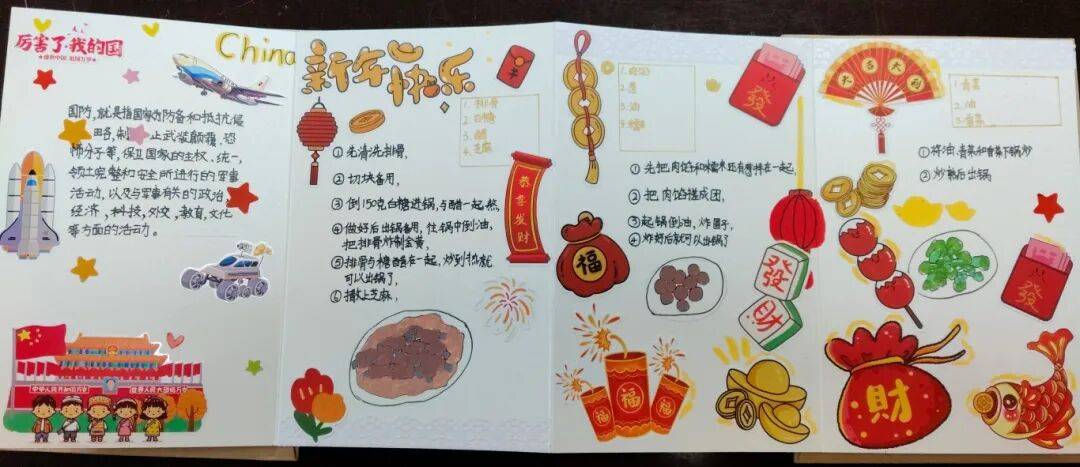 厉害了·我的国
China
国防,就是指国家为防备和抵抗侵
略,制止武装颠覆,恐
怖分子等,保卫国家的主权,统一,
领土完整和安全所进行的军事
活动,以及与军事有关的政治
经济,科技,外交,教育,文化
等方面的活动。
中华人民共和国万岁
世界人民大团结万岁
新年快乐
1.排骨
2.白糖
3.醋
4.芝麻
①先清洗排骨,
②切块备用,
③倒150克白糖进锅,与醋一起熬,
④做好后出锅备用,往锅中倒油,
把排骨炸制金黄,
⑤排骨与糖醋在一起,炒到热就
可以出锅了,
⑥撒上芝麻,
恭喜发财
1.肉馅
2.葱
3.油
4.糯米
發
①先把肉馅和糯米还有葱拌在一起,
②把肉馅搓成团,
③起锅倒油,炸圆子,
④炸好后就可以出锅了
福
發
財
福
福
福
大吉大利
發
1.青菜
2.油
3.香菜
①将油,青菜和香菜下锅炒
②炒熟后出锅
發
財